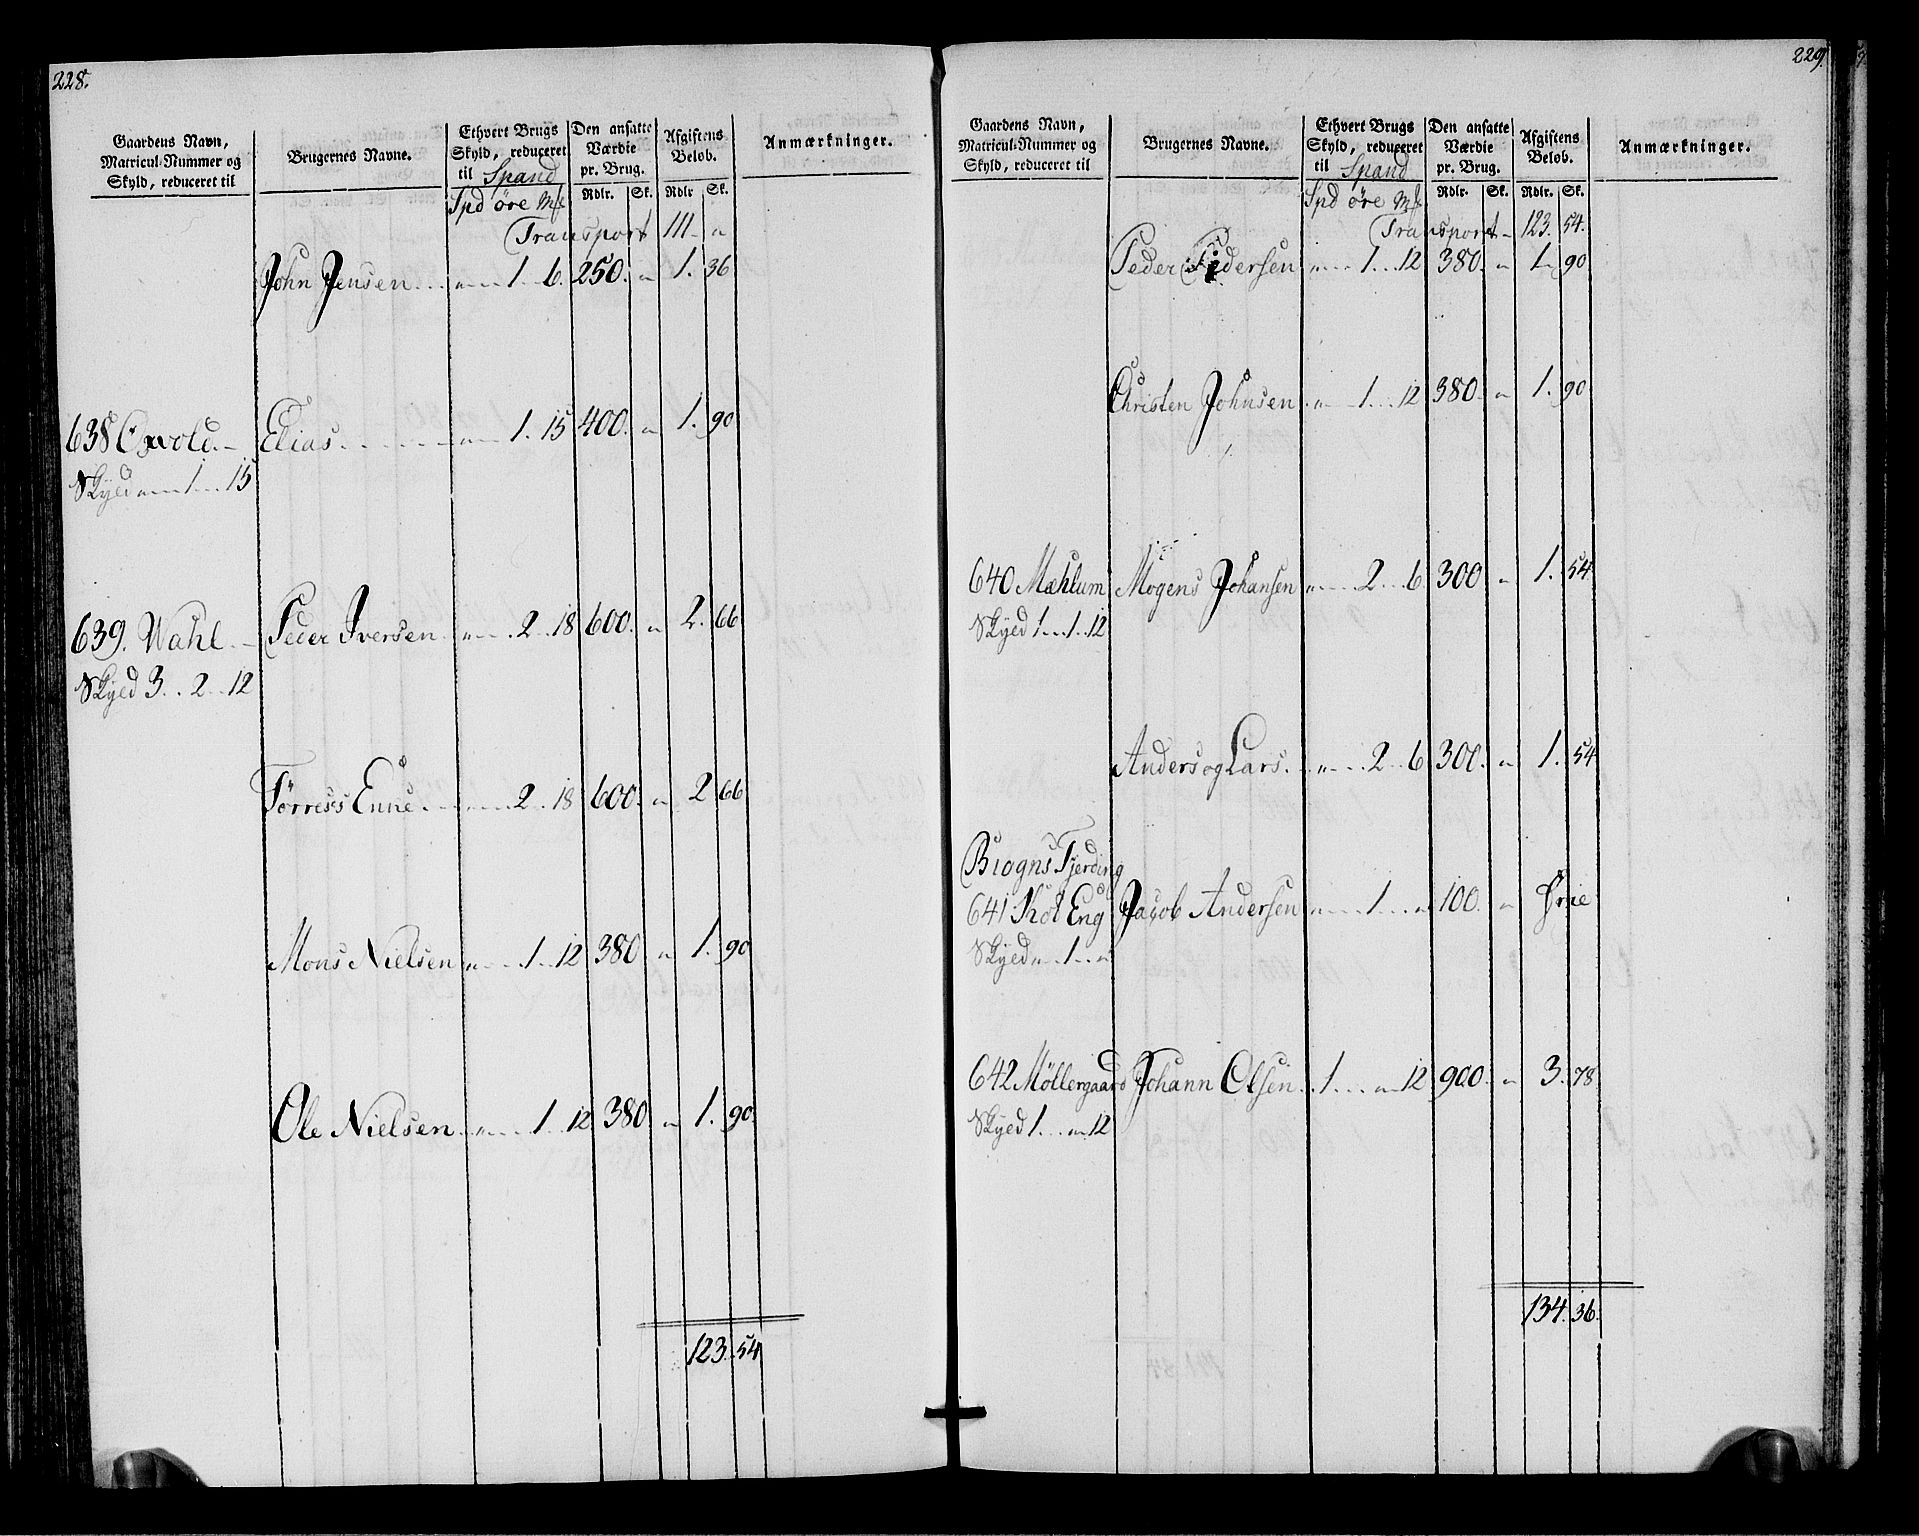 228.
Gaardens Navn, Matricul-Nummer og Skyld, reduceret til | Brugernes Navne. | Ethvert Brugs Skyld, reduceret til Spand | Den ansatte Værdie pr. Brug. | Afgiftens Beløb. | Anmærkninger.
Spd öre Mk | Rdlr. | Sk. | Rdlr | Sk.
Transport 111 - "
John Jensen . . . " - 1 . 6 . 250. " 1. 36
638 Oxvold. - Elias . . . . " - 1. 15 400. " 1. 90
Skyld " - 1 - 15
639. Wahl. - Peder Iversen " - 2 . 18 600. " 2. 66
Skyld 3. . 2 . 12
Törress Enne . . . " - 2 . 18 600. " 2 66
Mons Nielsen " - 1 . 12 380 " 1. 90
Ole Nielsen . . " - 1 . 12 380 " 1. 90.
123. 54
229.
Gaardens Navn, Matricul-Nummer og Skyld, reduceret til | Brugernes Navne. | Ethvert Brugs Skyld, reduceret til Spand | Den ansatte Værdie pr. Brug. | Afgiftens Beløb. | Anmærkninger.
Spd öre Mk | Rdlr. | Sk. | Rdlr. | Sk.
Transport - 123. 54.
Peder Pedersen " - 1 . . 12 380. " 1 - 90
Christen Johnsen . " - 1 . . 12 380. " 1. 90
640 Mæhlum Mogens Johansen " - 2 . . 6 300 " 1. 54
Skyld 1 . . 1 . . 12
Anders og Lars. . " - 2 . 6 300. " 1. 54
Biogns Fjerding
641 Hol Eng Jacob Andersen " - 1 . . " 100. " Frie
Skyld " . . 1 . . "
642 Möllergaard Johann Olsen . . 1 . . " 12 900. " 3. 78
Skyld 1 . . " 12
134. 36.